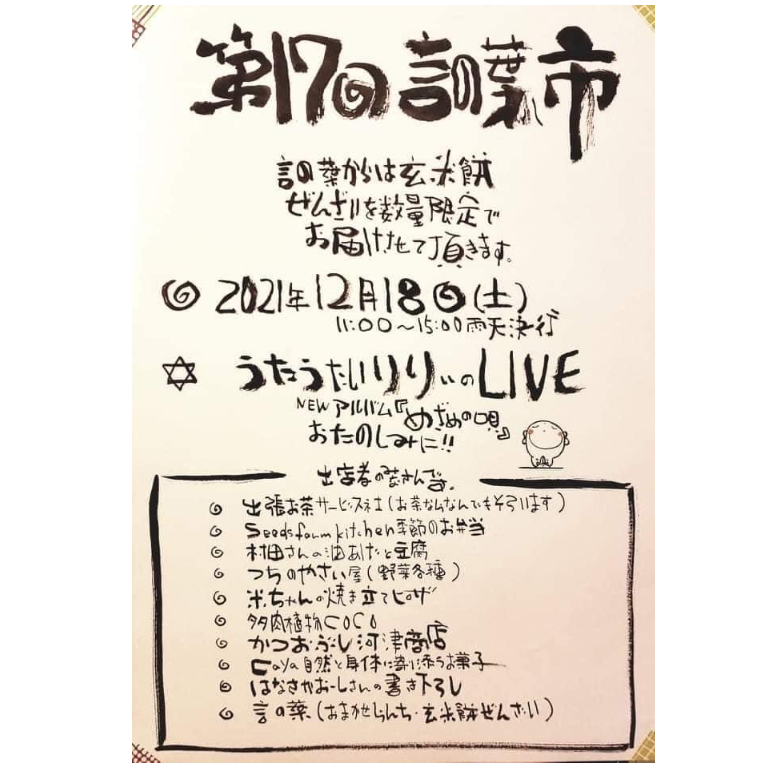 第17回 言の葉市
言の葉からは玄米餅
ぜんざいを数量限定で
お届けさせて頂きます。
2021年12月18日(土)
11:00〜15:00 雨天決行
うたうたいりりぃのLIVE
NEW アルバム『めざめの唄』
おたのしみに!!
出店者のみなさんです。
出張お茶サービスネ土(お茶なんなんでもそろいます)
Seedsfarmkitchen季節のお弁当
村田さんの油あげと豆腐
つちのやさい屋(野菜各種)
米ちゃんの焼き立てピザ
多肉植物COCO
かつおぶし河津商店
Caya自然と身体に寄り添うお菓子
はなさかおーしさんの書き下ろし
言の葉(おまかせらんち・玄米餅ぜんざい)